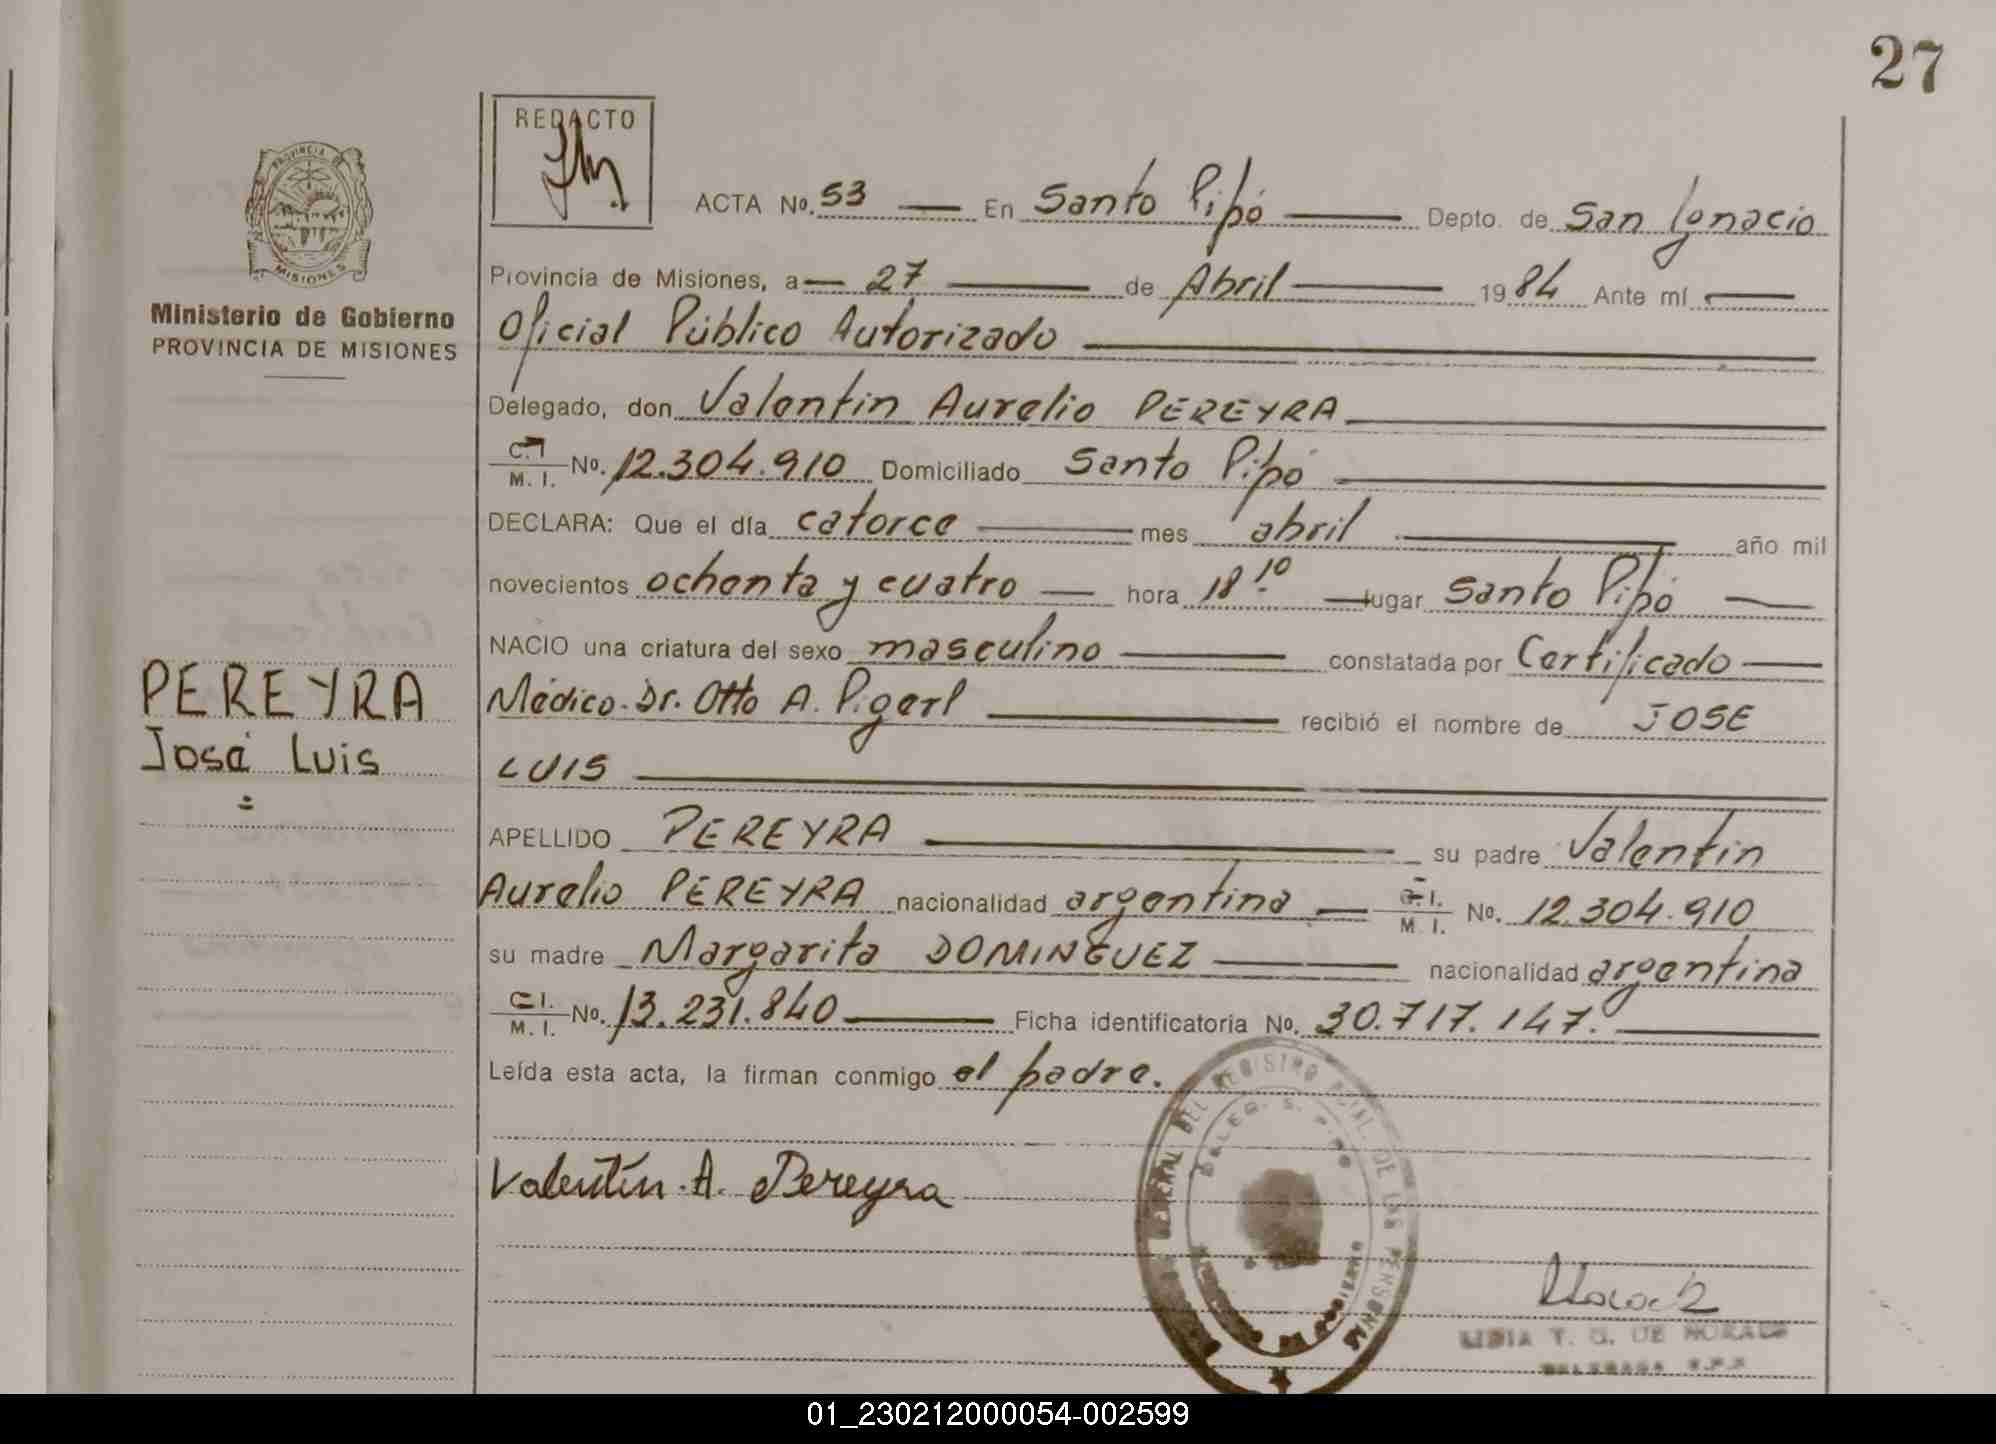 27
REDACTO
ACTA Nº. 53 En Santo Pipó Depto. de San Ignacio
Provincia de Misiones, a 27 de Abril 1984 Ante mí
Oficial Público Autorizado
Delegado, don Valentin Aurelio PEREYRA
C.I. M. I. Nº. 12.304.910 Domiciliado Santo Pipó
DECLARA: Que el día catorce mes abril año mil
novecientos ochenta y cuatro hora 18.10 lugar Santo Pipó
NACIO una criatura del sexo masculino constatada por Certificado
Médico. Dr. Otto A. Pigerl recibió el nombre de JOSE
LUIS
APELLIDO PEREYRA su padre Valentin
Aurelio PEREYRA nacionalidad argentina C.I. M. I. Nº. 12.304.910
su madre Margarita DOMINGUEZ nacionalidad argentina
C.I. M. I. Nº. 13.231.840 Ficha identificatoria Nº. 30.717.147.
Leída esta acta, la firman conmigo el padre.
Valentín. A. Pereyra
PROVINCIA DE
MISIONES
Ministerio de Gobierno
PROVINCIA DE MISIONES
PEREYRA
José Luis
GENERAL DEL REGISTRO DE LAS PERSONAS
LIDIA T. G. DE
01_230212000054-002599